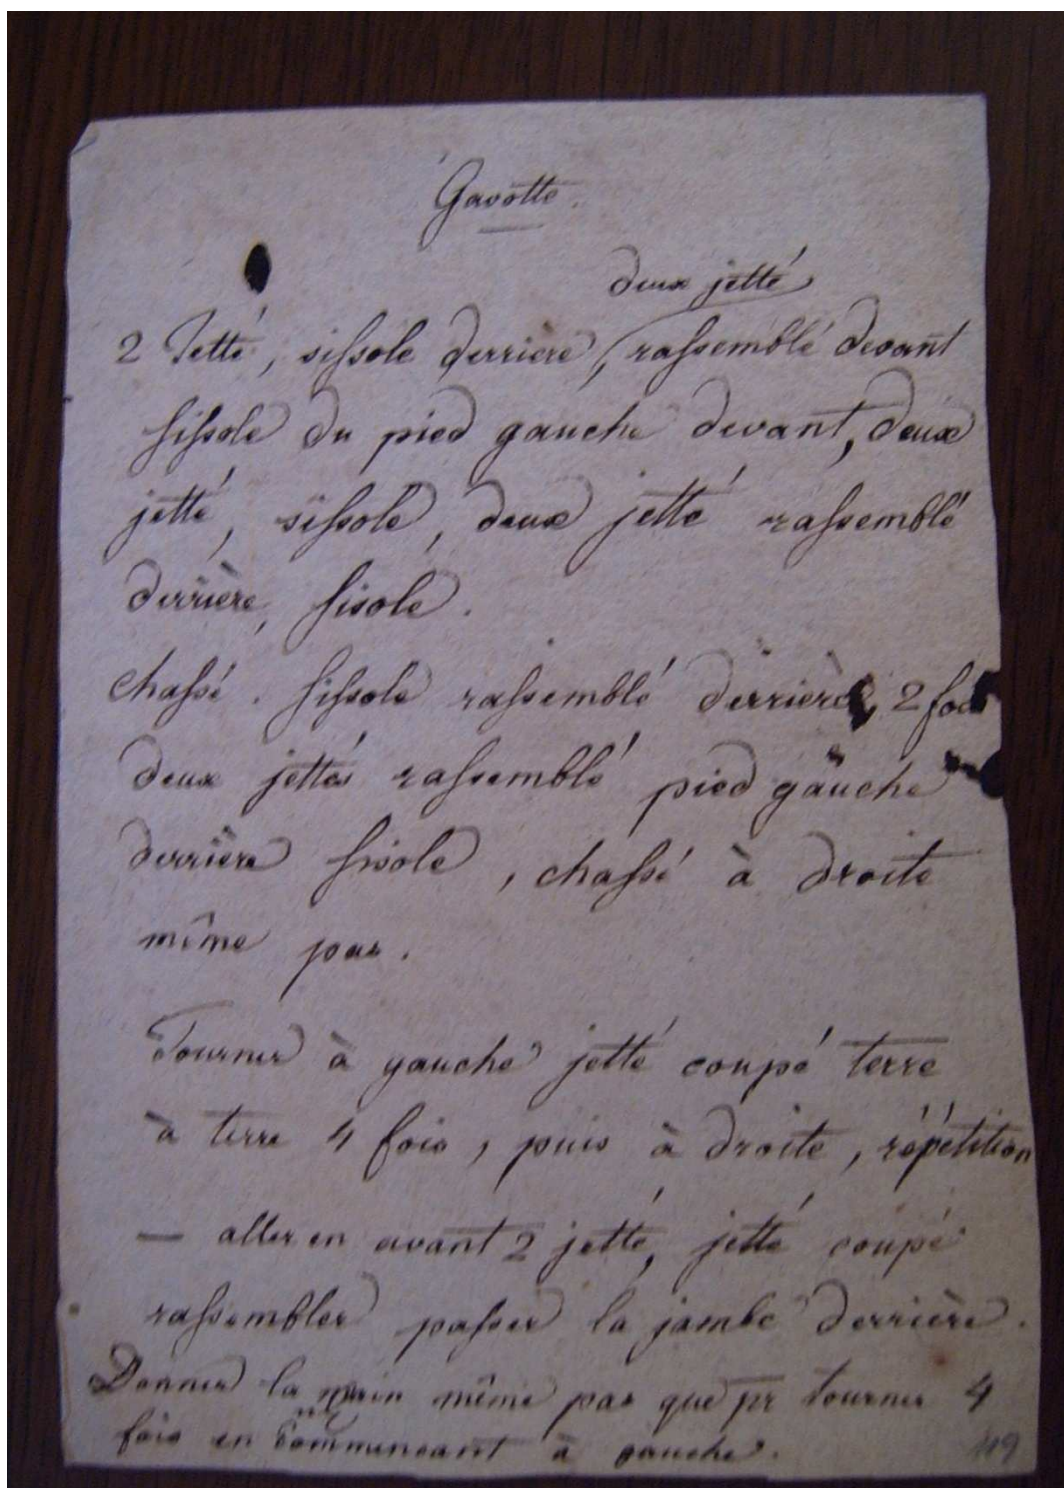 Gavotte.
deux jetté
2 Jetté, sissole derrière, rassemblé devant
sissole du pied gauche devant, deux
jetté, sissole, deux jetté rassemblé
derrière, sisole.
chassé. sissole rassemblé derrière, 2 fois
deux jettés rassemblé pied gauche
derrière sisole, chassé à droite
même pas.
Tourner à gauche jetté coupé terre
à terre 4 fois, puis à droite, répétition
— aller en avant 2 jetté, jetté coupé
rassembler passer la jambe derrière.
Donner la main même pas que pr tourner 4
fois en commencant à gauche.
119